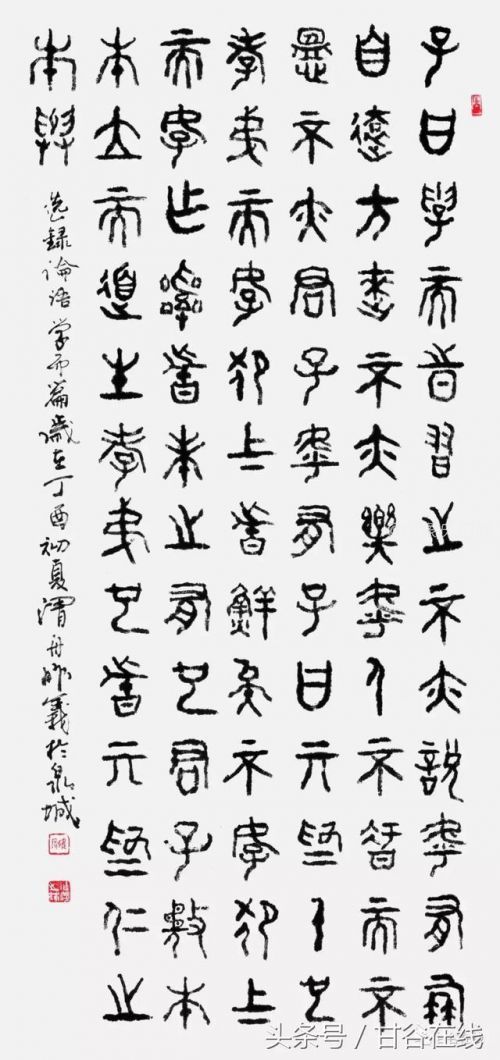 子曰學而時習之不亦說乎有朋
自遠方來不亦樂乎人不知而不
慍不亦君子乎有子曰其為人也
孝弟而好犯上者鮮矣不好犯上
而好作亂者未之有也君子務本
本立而道生孝弟也者其為仁之
本與
选録論语学而篇歲在丁酉初夏渭舟義於泉城
头条号 / 甘谷在线